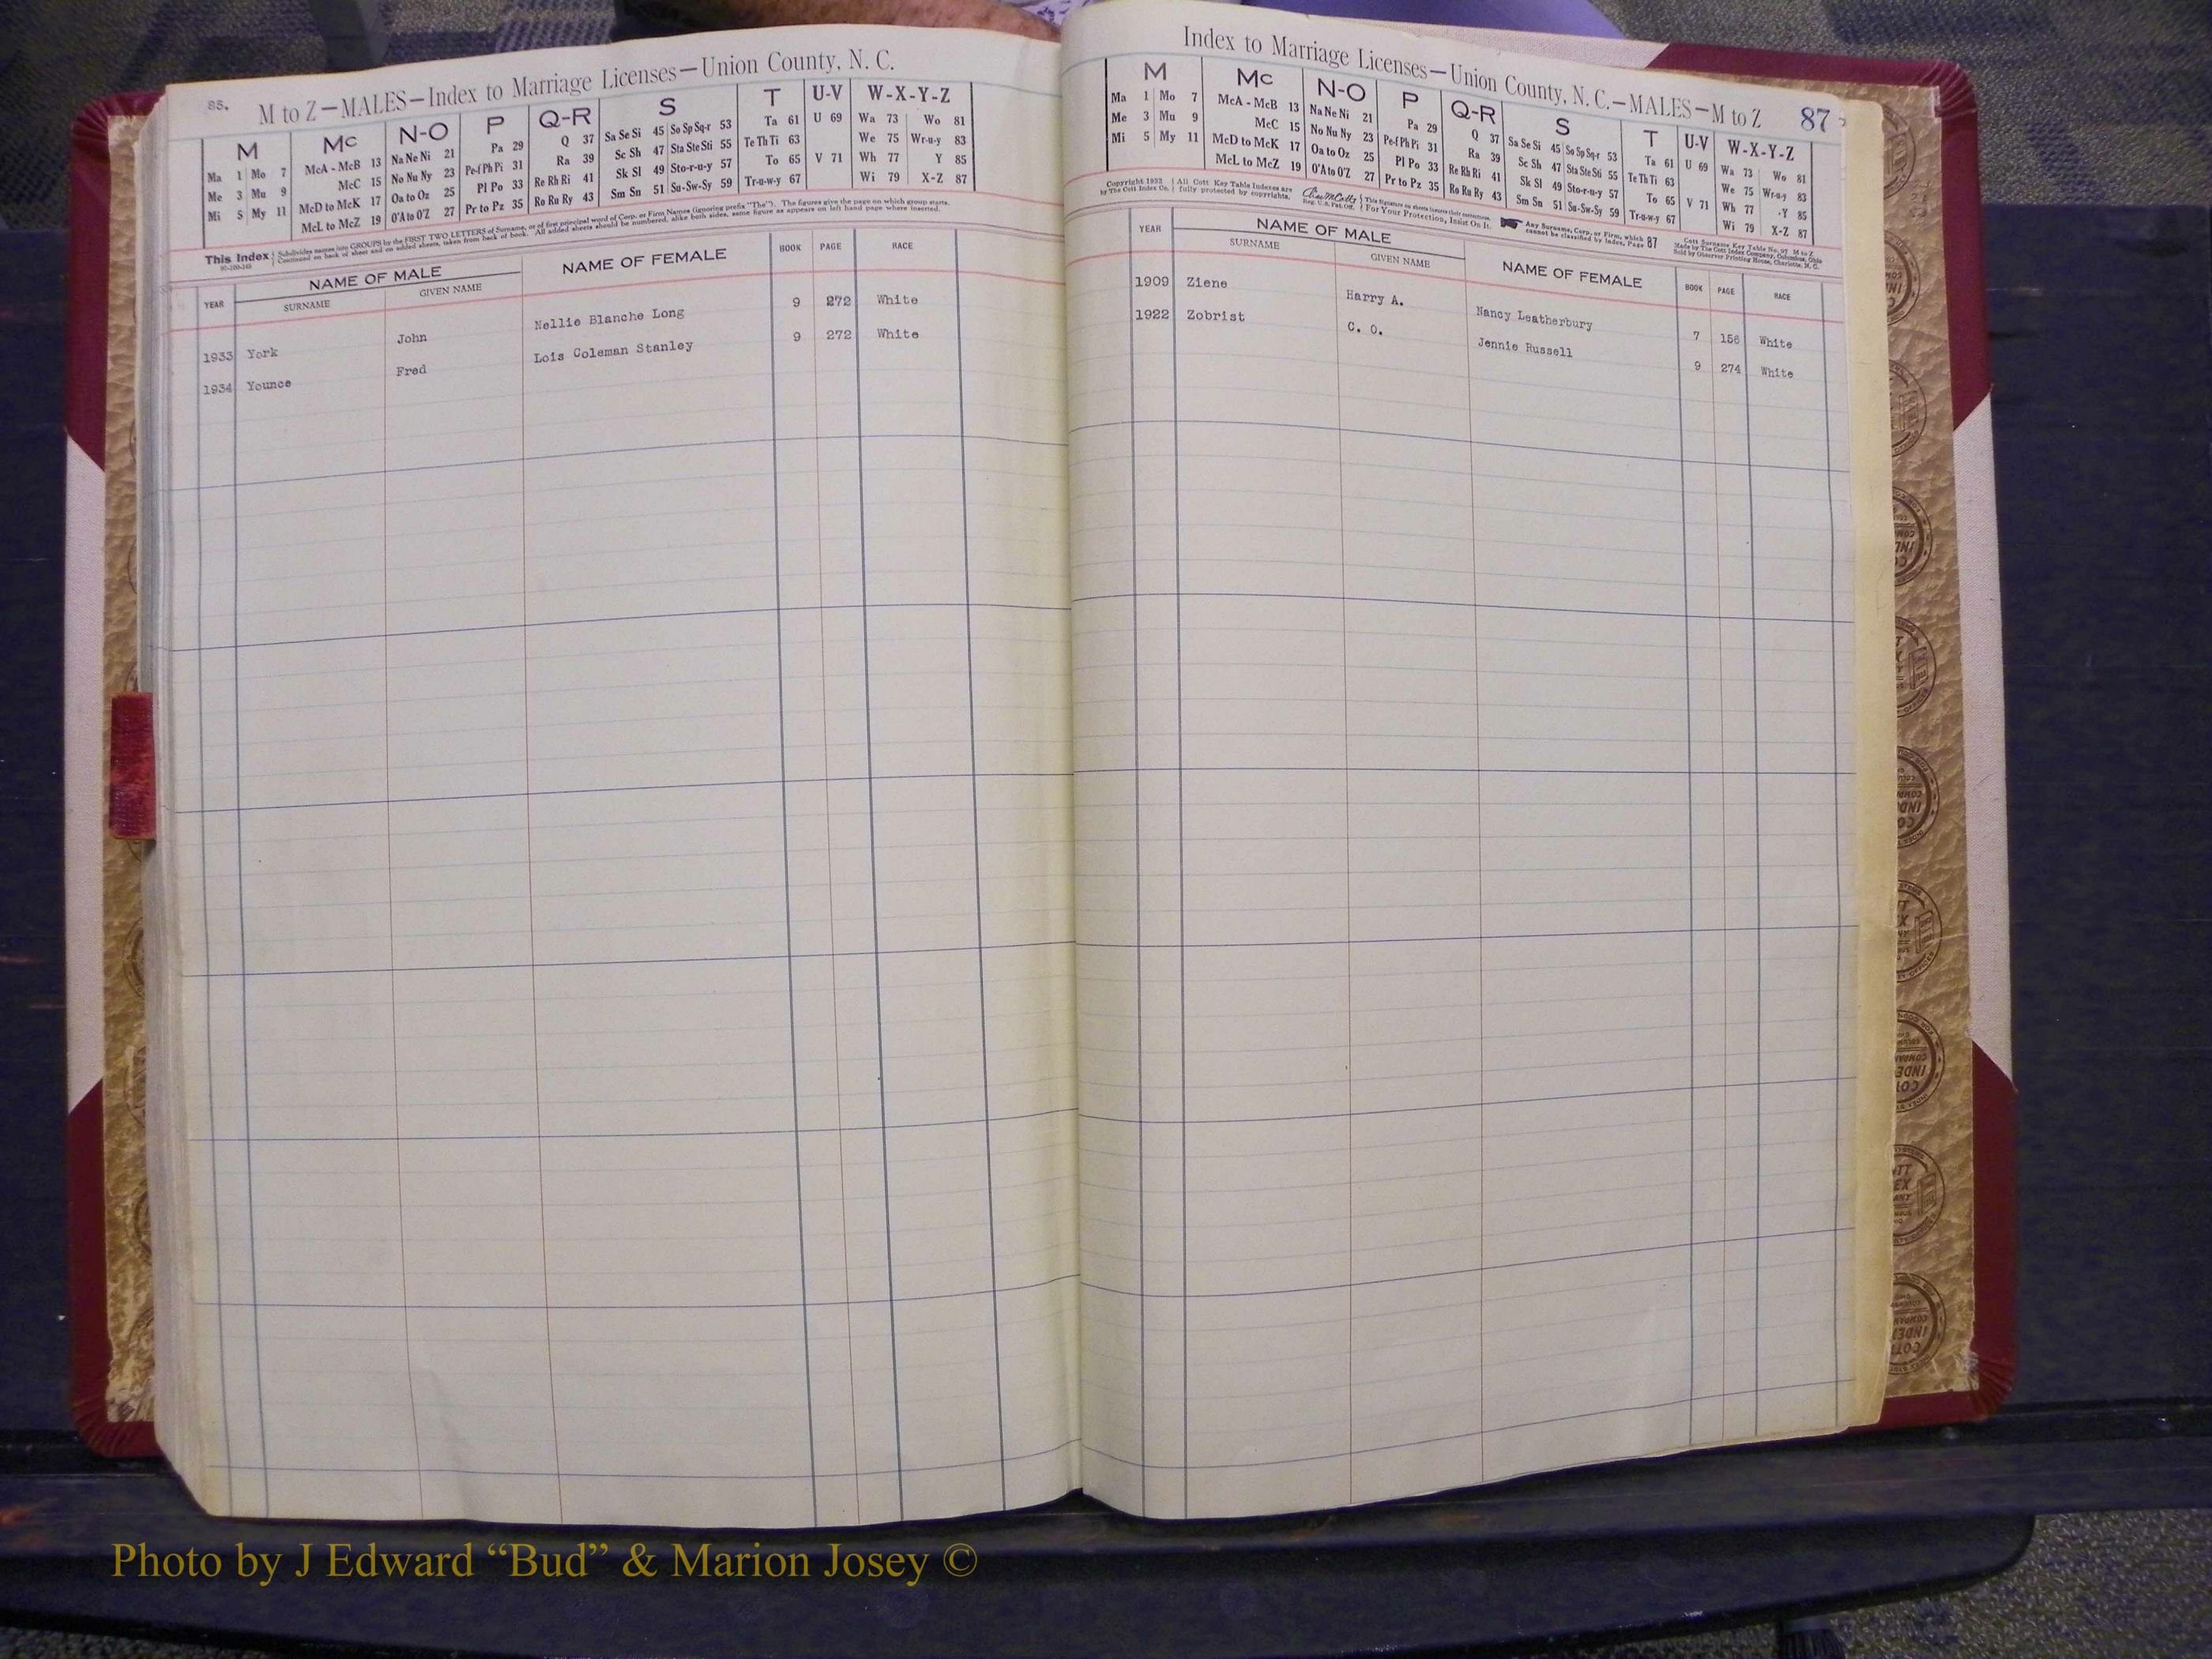 85.
M to Z—MALES—Index to Marriage Licenses—Union County, N. C.
M Mc N-O P Q-R S T U-V W-X-Y-Z
Ma 1 Mo 7 McA - McB 13 Na Ne Ni 21 Pa 29 Q 37 Sa Se Si 45 So Sp Sq-r 53 Ta 61 U 69 Wa 73 Wo 81
Me 3 Mu 9 McC 15 No Nu Ny 23 Pe-f Ph Pi 31 Ra 39 Sc Sh 47 Sta Ste Sti 55 Te Th Ti 63 We 75 Wr-u-y 83
Mi 5 My 11 McD to McK 17 Oa to Oz 25 Pl Po 33 Re Rh Ri 41 Sk Sl 49 Sto-r-u-y 57 To 65 V 71 Wh 77 Y 85
McL to McZ 19 O'A to O'Z 27 Pr to Pz 35 Ro Ru Ry 43 Sm Sn 51 Su-Sw-Sy 59 Tr-u-w-y 67 Wi 79 X-Z 87
This Index Subdivides names into GROUPS by the FIRST TWO LETTERS of Surname, or of first principal word of Corp. or Firm Names (ignoring prefix "The"). The figures give the page on which group starts.
Continued on back of sheet and on added sheets, taken from back of book. All added sheets should be numbered, alike both sides, same figure as appears on left hand page where inserted.
YEAR NAME OF MALE NAME OF FEMALE BOOK PAGE RACE
SURNAME GIVEN NAME
1933 York John Nellie Blanche Long 9 272 White
1934 Younce Fred Lois Coleman Stanley 9 272 White
Index to Marriage Licenses—Union County, N. C.—MALES—M to Z 87
M Mc N-O P Q-R S T U-V W-X-Y-Z
Ma 1 Mo 7 McA - McB 13 Na Ne Ni 21 Pa 29 Q 37 Sa Se Si 45 So Sp Sq-r 53 Ta 61 U 69 Wa 73 Wo 81
Me 3 Mu 9 McC 15 No Nu Ny 23 Pe-f Ph Pi 31 Ra 39 Sc Sh 47 Sta Ste Sti 55 Te Th Ti 63 We 75 Wr-u-y 83
Mi 5 My 11 McD to McK 17 Oa to Oz 25 Pl Po 33 Re Rh Ri 41 Sk Sl 49 Sto-r-u-y 57 To 65 V 71 Wh 77 Y 85
McL to McZ 19 O'A to O'Z 27 Pr to Pz 35 Ro Ru Ry 43 Sm Sn 51 Su-Sw-Sy 59 Tr-u-w-y 67 Wi 79 X-Z 87
Copyright 1933 by The Cott Index Co. All Cott Key Table Indexes are fully protected by copyrights. For Your Protection, Insist On It. Any Surname, Corp. or Firm, which cannot be classified by Index, Page 87
Made by The Cott Index Company, Columbus, Ohio
Sold by Observer Printing House, Charlotte, N. C.
YEAR NAME OF MALE NAME OF FEMALE BOOK PAGE RACE
SURNAME GIVEN NAME
1909 Ziene Harry A. Nancy Leatherbury 7 156 White
1922 Zobrist C. O. Jennie Russell 9 274 White
Photo by J Edward “Bud” & Marion Josey ©